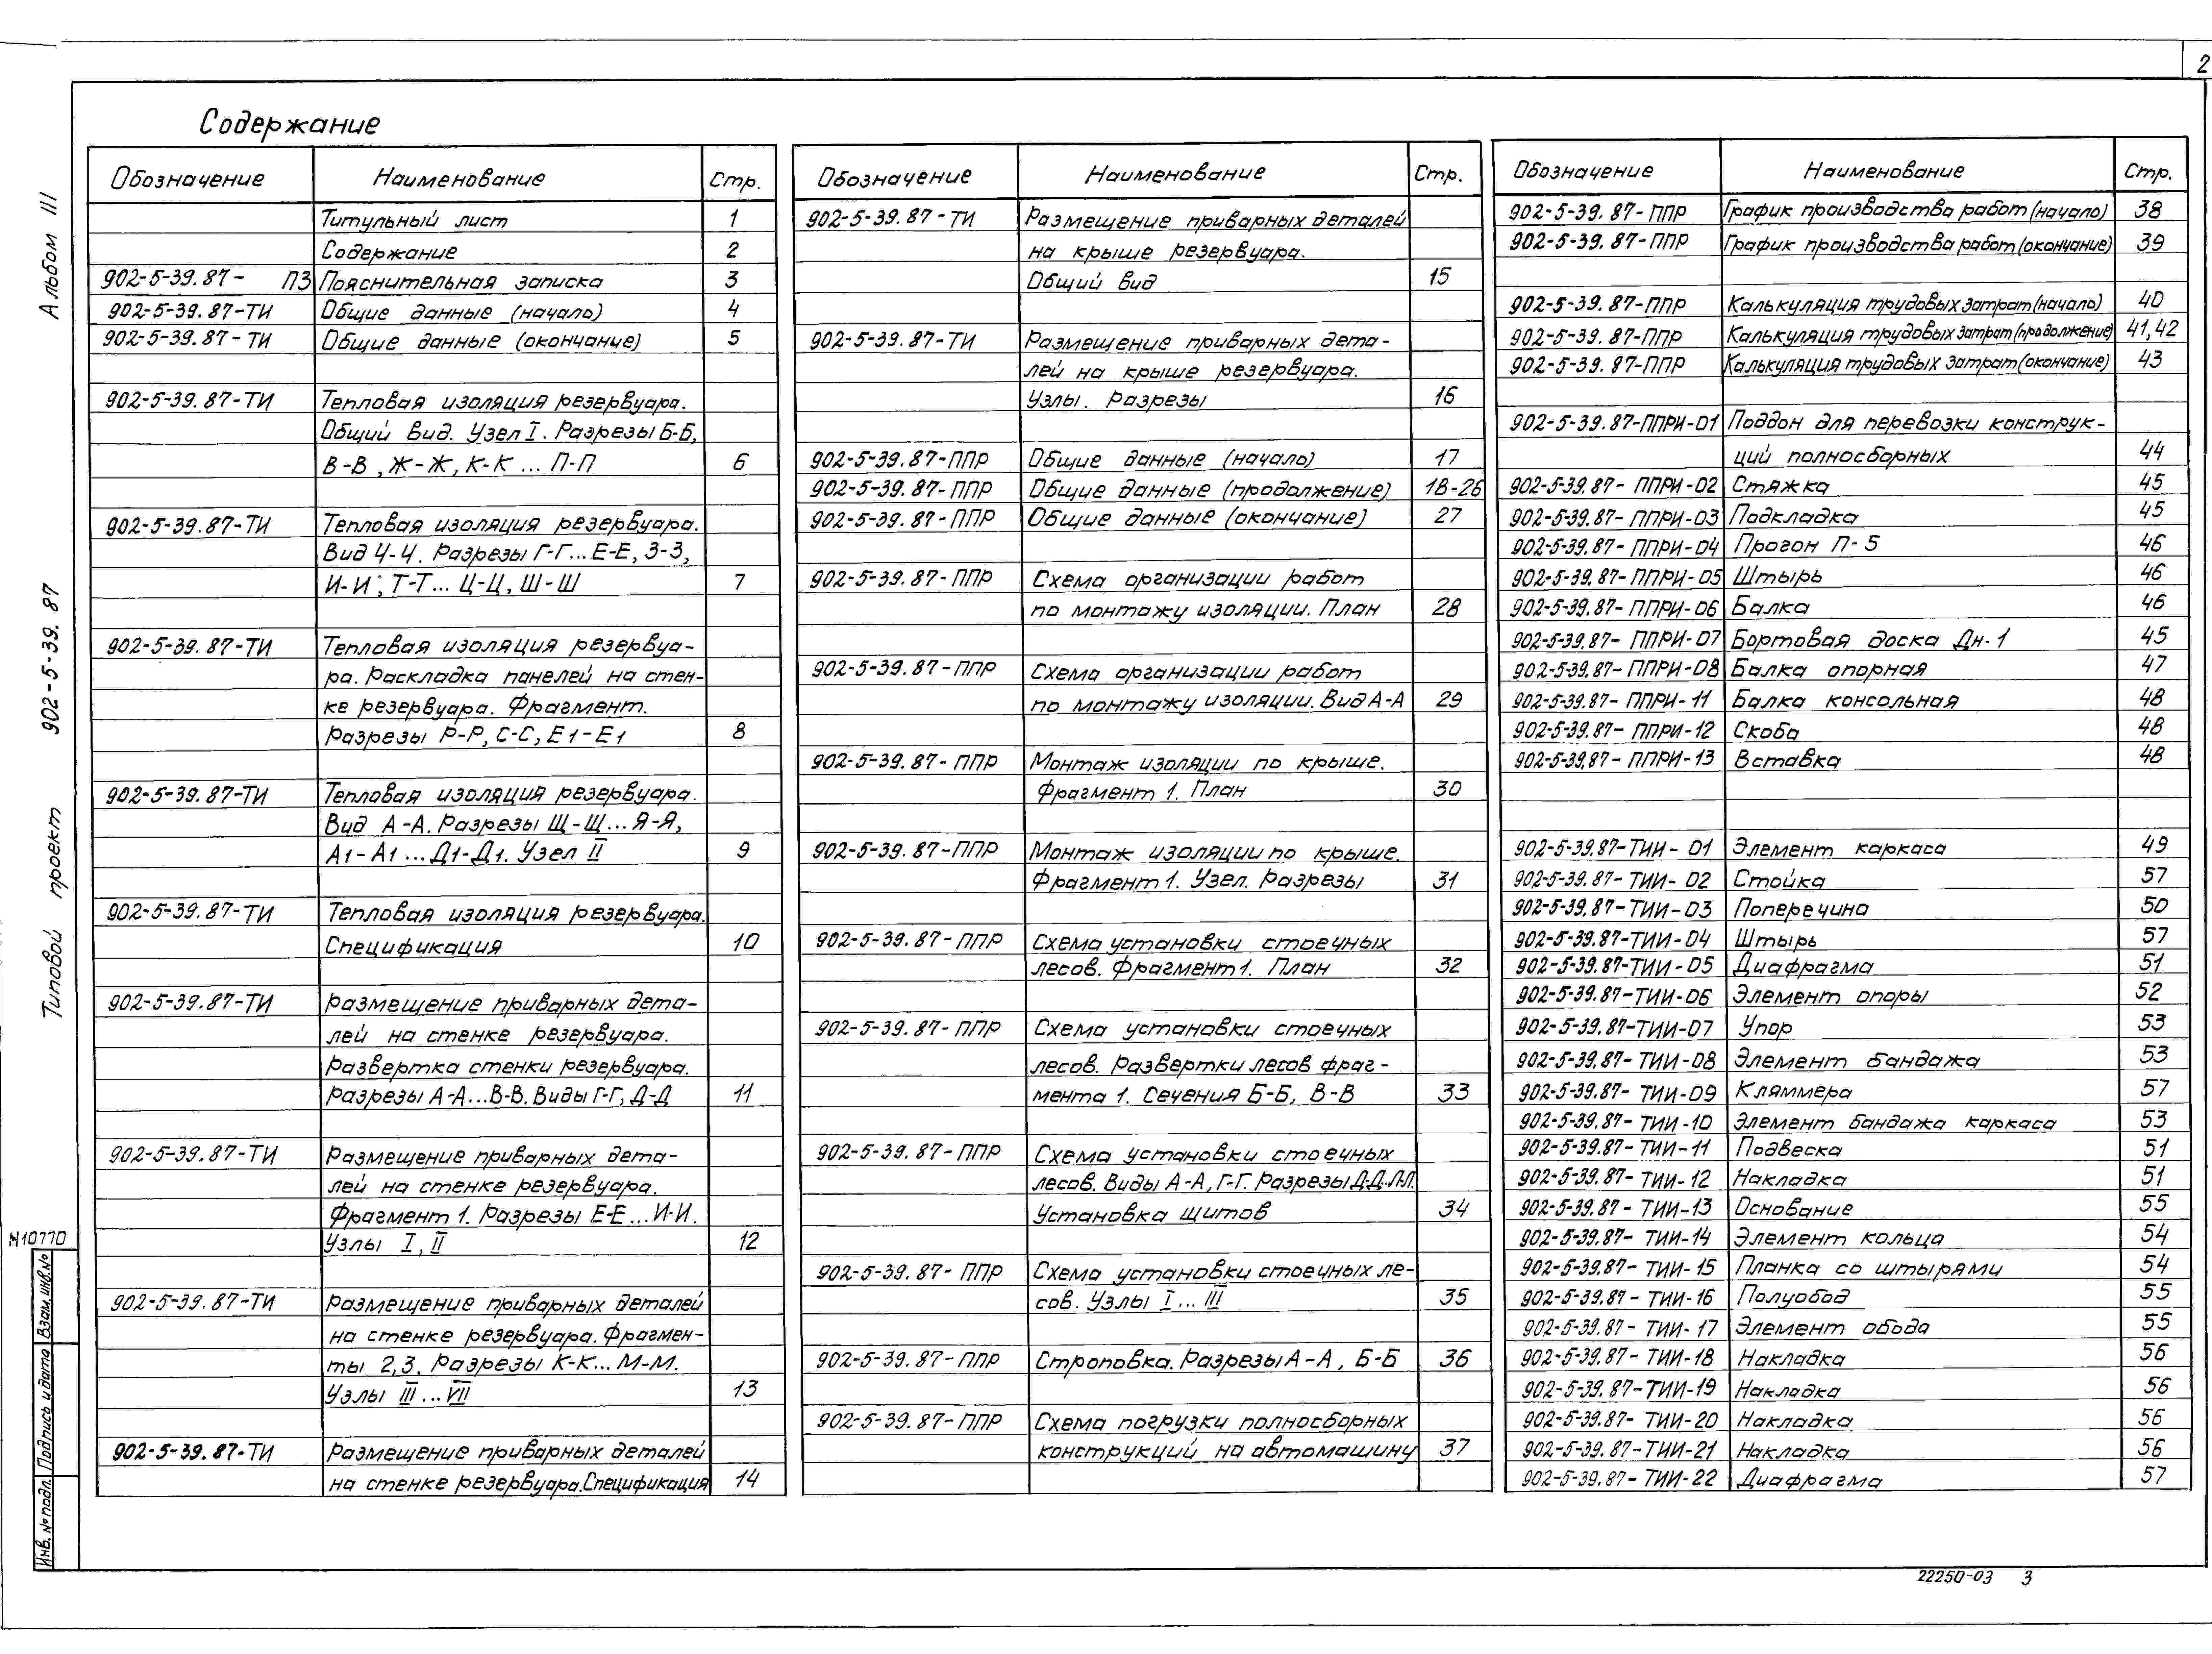 2
Содержание
Обозначение Наименование Стр.
Титульный лист 1
Содержание 2
902-5-39.87- ПЗ Пояснительная записка 3
902-5-39.87-ТИ Общие данные (начало) 4
902-5-39.87-ТИ Общие данные (окончание) 5
902-5-39.87-ТИ Тепловая изоляция резервуара.
Общий вид. Узел I. Разрезы Б-Б,
В-В, Ж-Ж, К-К ... П-П 6
902-5-39.87-ТИ Тепловая изоляция резервуара.
Вид Ч-Ч. Разрезы Г-Г... Е-Е, З-З,
И-И, Т-Т... Ц-Ц, Ш-Ш 7
902-5-39.87-ТИ Тепловая изоляция резервуа-
ра. Раскладка панелей на стен-
ке резервуара. Фрагмент.
Разрезы Р-Р, С-С, Е1-Е1 8
902-5-39.87-ТИ Тепловая изоляция резервуара.
Вид А-А. Разрезы Щ-Щ... Я-Я,
А1-А1 ... Д1-Д1. Узел II 9
902-5-39.87-ТИ Тепловая изоляция резервуара.
Спецификация 10
902-5-39.87-ТИ Размещение приварных дета-
лей на стенке резервуара.
Развертка стенки резервуара.
Разрезы А-А...В-В. Виды Г-Г, Д-Д 11
902-5-39.87-ТИ Размещение приварных дета-
лей на стенке резервуара.
Фрагмент 1. Разрезы Е-Е ... И-И.
Узлы I, II 12
902-5-39.87-ТИ Размещение приварных деталей
на стенке резервуара. Фрагмен-
ты 2,3. Разрезы К-К... М-М.
Узлы III ... VII 13
902-5-39.87-ТИ Размещение приварных деталей
на стенке резервуара. Спецификация 14
Обозначение Наименование Стр.
902-5-39.87-ТИ Размещение приварных деталей
на крыше резервуара.
Общий вид 15
902-5-39.87-ТИ Размещение приварных дета-
лей на крыше резервуара.
Узлы. Разрезы 16
902-5-39.87-ППР Общие данные (начало) 17
902-5-39.87-ППР Общие данные (продолжение) 18-26
902-5-39.87-ППР Общие данные (окончание) 27
902-5-39.87-ППР Схема организации работ
по монтажу изоляции. План 28
902-5-39.87-ППР Схема организации работ
по монтажу изоляции. Вид А-А 29
902-5-39.87-ППР Монтаж изоляции по крыше.
Фрагмент 1. План 30
902-5-39.87-ППР Монтаж изоляции по крыше.
Фрагмент 1. Узел. Разрезы 31
902-5-39.87-ППР Схема установки стоечных
лесов. Фрагмент 1. План 32
902-5-39.87-ППР Схема установки стоечных
лесов. Развертки лесов фраг-
мента 1. Сечения Б-Б, В-В 33
902-5-39.87-ППР Схема установки стоечных
лесов. Виды А-А, Г-Г. Разрезы Д-Д..Л-Л.
Установка щитов 34
902-5-39.87-ППР Схема установки стоечных ле-
сов. Узлы I ... III 35
902-5-39.87-ППР Строповка. Разрезы А-А, Б-Б 36
902-5-39.87-ППР Схема погрузки полносборных
конструкций на автомашину 37
Обозначение Наименование Стр.
902-5-39.87-ППР График производства работ (начало) 38
902-5-39.87-ППР График производства работ (окончание) 39
902-5-39.87-ППР Калькуляция трудовых затрат (начало) 40
902-5-39.87-ППР Калькуляция трудовых затрат (продолжение) 41,42
902-5-39.87-ППР Калькуляция трудовых затрат (окончание) 43
902-5-39.87-ППРИ-01 Поддон для перевозки конструк-
ций полносборных 44
902-5-39.87-ППРИ-02 Стяжка 45
902-5-39.87-ППРИ-03 Подкладка 45
902-5-39.87-ППРИ-04 Прогон П-5 46
902-5-39.87-ППРИ-05 Штырь 46
902-5-39.87-ППРИ-06 Балка 46
902-5-39.87-ППРИ-07 Бортовая доска Дн-1 45
902-5-39.87-ППРИ-08 Балка опорная 47
902-5-39.87-ППРИ-11 Балка консольная 48
902-5-39.87-ППРИ-12 Скоба 48
902-5-39.87-ППРИ-13 Вставка 48
902-5-39.87-ТИИ-01 Элемент каркаса 49
902-5-39.87-ТИИ-02 Стойка 57
902-5-39.87-ТИИ-03 Поперечина 50
902-5-39.87-ТИИ-04 Штырь 57
902-5-39.87-ТИИ-05 Диафрагма 51
902-5-39.87-ТИИ-06 Элемент опоры 52
902-5-39.87-ТИИ-07 Упор 53
902-5-39.87-ТИИ-08 Элемент бандажа 53
902-5-39.87-ТИИ-09 Кляммера 57
902-5-39.87-ТИИ-10 Элемент бандажа каркаса 53
902-5-39.87-ТИИ-11 Подвеска 51
902-5-39.87-ТИИ-12 Накладка 51
902-5-39.87-ТИИ-13 Основание 55
902-5-39.87-ТИИ-14 Элемент кольца 54
902-5-39.87-ТИИ-15 Планка со штырями 54
902-5-39.87-ТИИ-16 Полуобод 55
902-5-39.87-ТИИ-17 Элемент обода 55
902-5-39.87-ТИИ-18 Накладка 56
902-5-39.87-ТИИ-19 Накладка 56
902-5-39.87-ТИИ-20 Накладка 56
902-5-39.87-ТИИ-21 Накладка 56
902-5-39.87-ТИИ-22 Диафрагма 57
Типовой проект 902-5-39.87 Альбом III
Н10770
Инв. № подл. Подпись и дата Взам. инв. №
22250-03 3